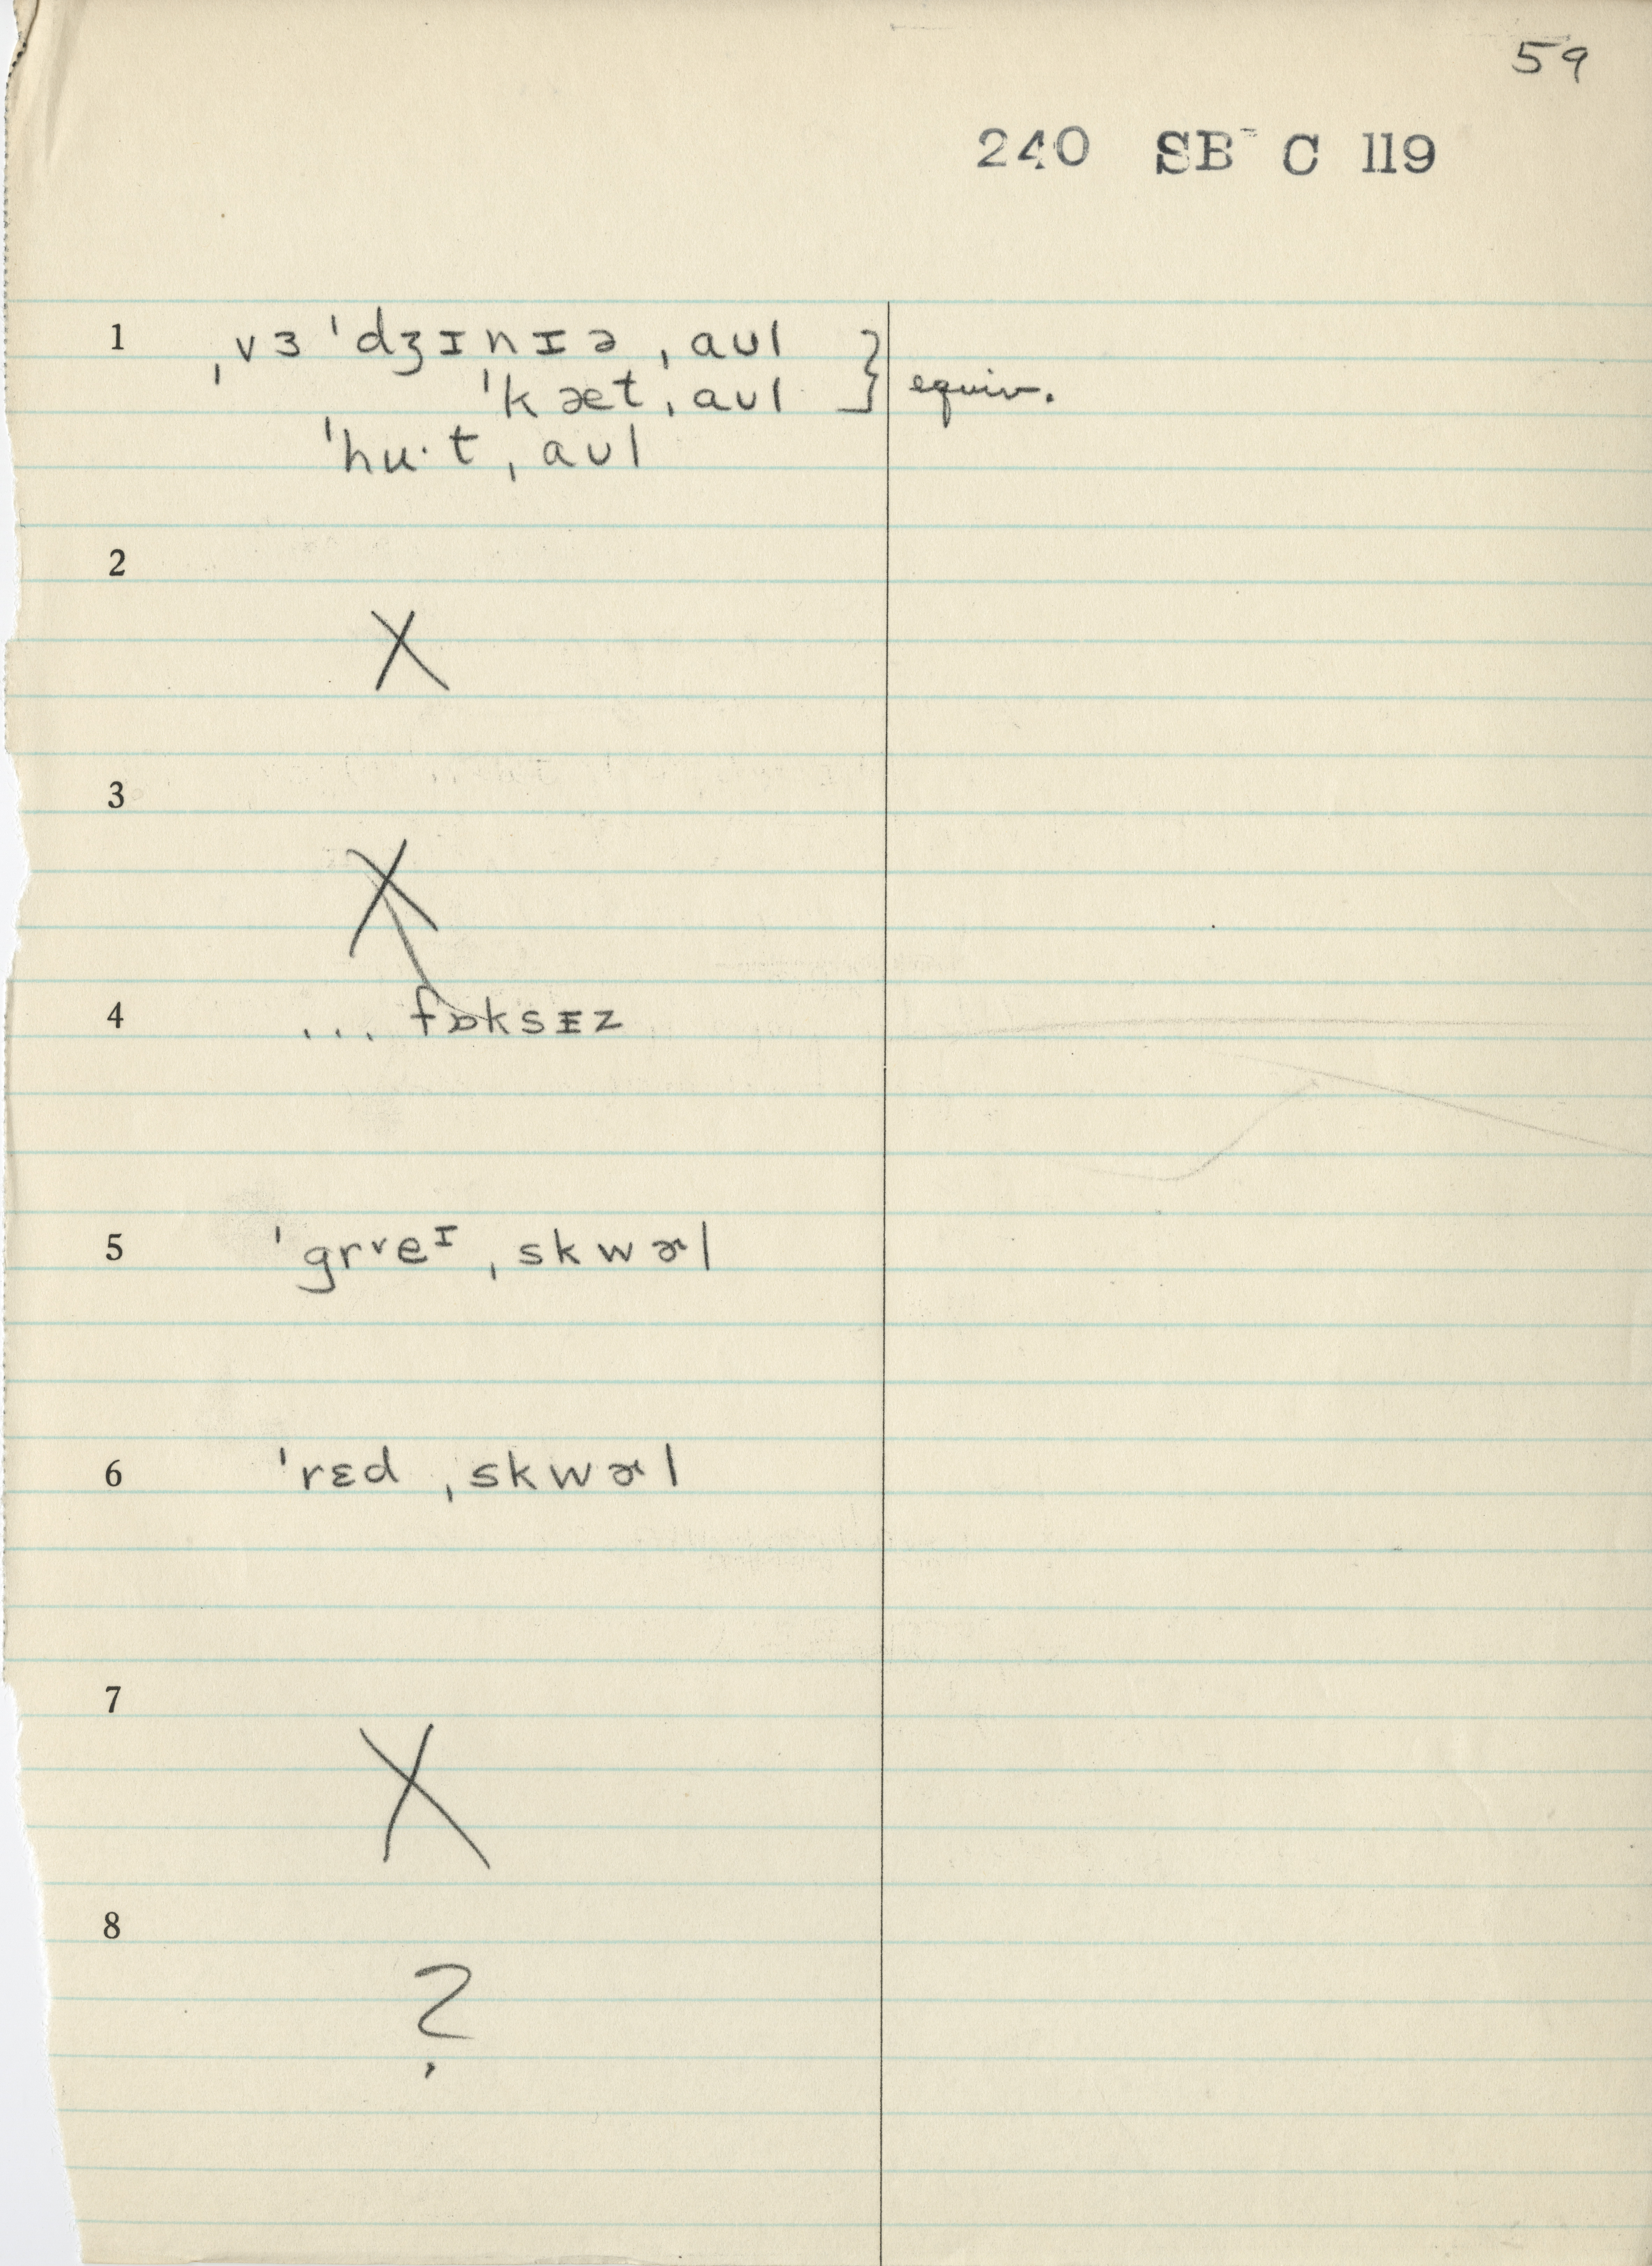 59
240 SB C 119
1 ˌvɜˈdʒɪnɪəˌaʊl } equiv.
ˈkætˌaʊl
ˈhu·tˌaʊl
2
X
3
X
4 ... fɒksɪz
5 ˈgrᵛeᶦˌskwɚl
6 ˈrɛdˌskwɚl
7
X
8
?